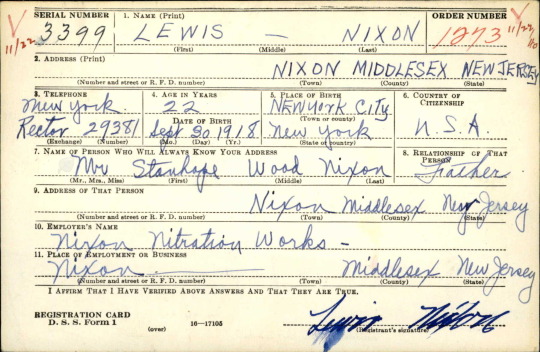 SERIAL NUMBER 1. NAME (Print) ORDER NUMBER
3399 LEWIS — NIXON 1273
11/22 (First) (Middle) (Last)
2. ADDRESS (Print)
NIXON MIDDLESEX NEW JERSEY
(Number and street or R. F. D. number) (Town) (County) (State)
3. TELEPHONE 4. AGE IN YEARS 5. PLACE OF BIRTH 6. COUNTRY OF CITIZENSHIP
New York 22 NEW YORK CITY
DATE OF BIRTH (Town or county)
Rector 29381 Sept 30 1918 New York U.S.A.
(Exchange) (Number) (Mo.) (Day) (Yr.) (State or country)
7. NAME OF PERSON WHO WILL ALWAYS KNOW YOUR ADDRESS 8. RELATIONSHIP OF THAT PERSON
Mr Stanhope Wood Nixon Father
(Mr., Mrs., Miss) (First) (Middle) (Last)
9. ADDRESS OF THAT PERSON
Nixon Middlesex New Jersey
(Number and street or R. F. D. number) (Town) (County) (State)
10. EMPLOYER'S NAME
Nixon Nitration Works —
11. PLACE OF EMPLOYMENT OR BUSINESS
Nixon — Middlesex New Jersey
(Number and street or R. F. D. number) (Town) (County) (State)
I AFFIRM THAT I HAVE VERIFIED ABOVE ANSWERS AND THAT THEY ARE TRUE.
REGISTRATION CARD
D. S. S. Form 1 (over) 16—17105 Lewis Nixon
(Registrant's signature)